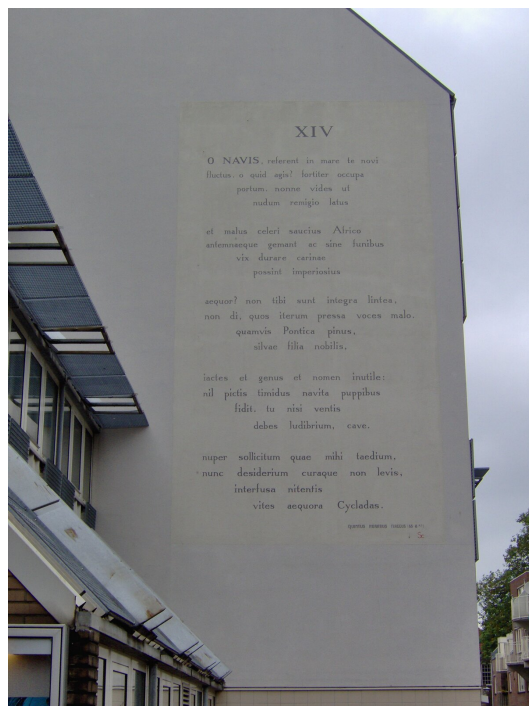 XIV
O NAVIS, referent in mare te novi
fluctus. o quid agis? fortiter occupa
portum. nonne vides ut
nudum remigio latus
et malus celeri saucius Africo
antemnaeque gemant ac sine funibus
vix durare carinae
possint imperiosius
aequor? non tibi sunt integra lintea,
non di, quos iterum pressa voces malo.
quamvis Pontica pinus,
silvae filia nobilis,
iactes et genus et nomen inutile:
nil pictis timidus navita puppibus
fidit. tu nisi ventis
debes ludibrium, cave.
nuper sollicitum quae mihi taedium,
nunc desiderium curaque non levis,
interfusa nitentis
vites aequora Cycladas.
QUINTUS HORATIUS FLACCUS